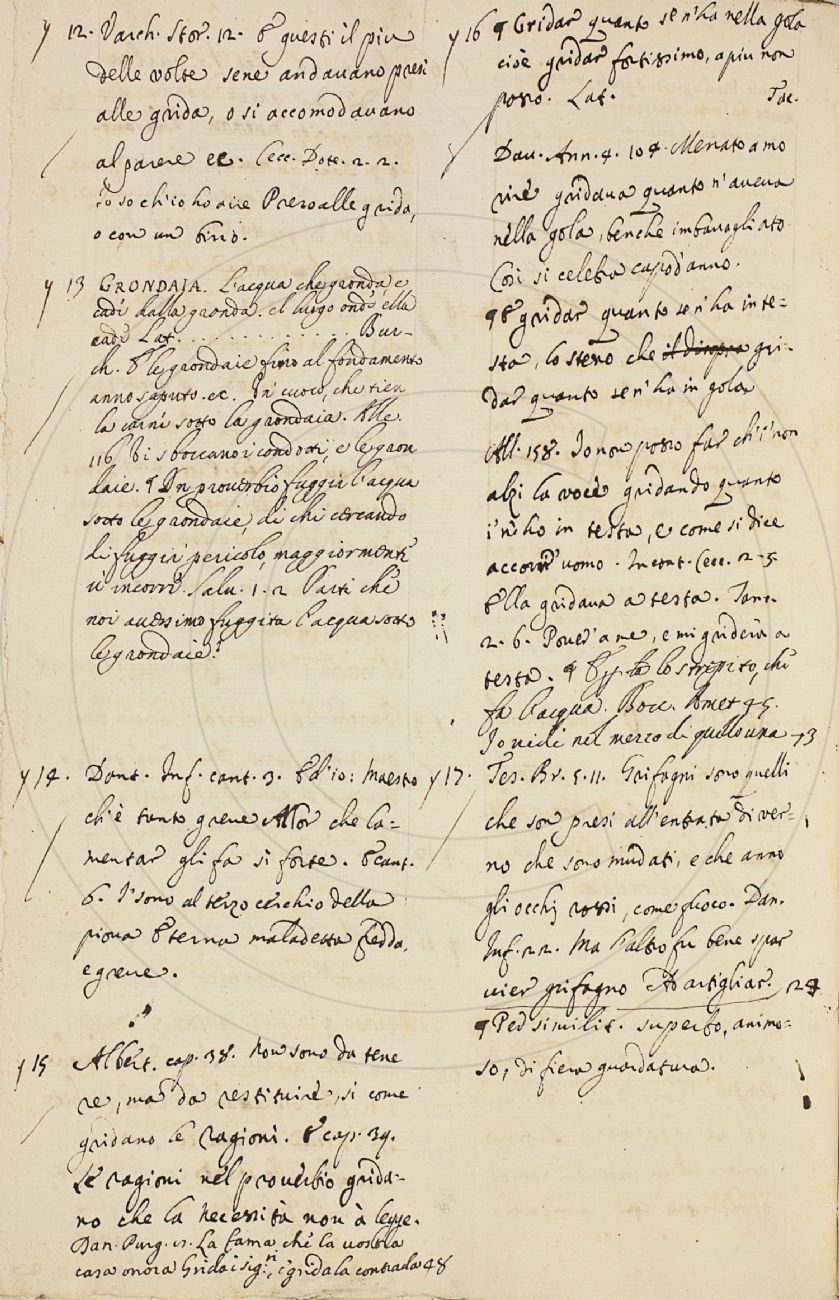 y 12. Varch. Stor. 12. E questi il piu
delle volte sene andavano presi
alle grida, o si accomodavano
al parere ec. Cecc. Dote. 2. 2.
Io so ch'io ho aire Preso alle grida,
o con un
y 13 GRONDAJA. L'acqua che gronda, e
cade dalla gronda. e'l luogo ond'ella
cade Lat. . . . . . . . . . . . Bur-
ch. E le grondaie fino al fondamento
anno saputo. ec. Un cuoco, che tien
la carne sotto la grondaia. Alle.
116. Vi sboccano i condotti, e le gron
daie. ¶ In proverbio fuggir l'acqua
sotto le grondaie, di chi cercando
di fuggire pericolo, maggiormente
v'incorre. Salv. 1. 2 Parti che
noi avessimo fuggita l'acqua sotto
le grondaie?
y 14. Dant. Inf. cant. 3. Ed io: Maestro
ch'è tanto greve Allor che la=
mentar gli fa sì forte. E cant.
6. I' sono al terzo cerchio della
piova Eterna maladetta fredda,
e greve.
y 15 Albert. cap. 38. Non sono da tene
re, ma da restituire, si come
gridano le ragioni. E cap. 39.
Le ragioni nel proverbio grida=
no che la necessità non à legge.
Dan. Purg. 8. La fama che la vostra
casa onora Grida i sig.ri, e grida la contrada 48
y 16 ¶ Gridar quanto se n'ha nella gola
cioè gridar fortissimo, a piu non
posso. Lat. Tac.
Dav. Ann. 4. 104. Menato a mo
rire gridava quanto n'aveva
nella gola, benche imbavagliato
Così si celebra capo d'anno.
¶ E gridar quanto se n'ha in te=
sta, lo stesso che il di sopra gri-
dar quanto se n'ha in gola
All. 158. Io non posso far ch'i' non
alzi la voce gridando quanto
i' n'ho in testa, e come si dice
accorr' uomo. Incant. Cecc. 2. 5.
Ella gridava a testa.
2. 6. Pover'a me, e mi griderà a
testa. ¶ lo strepito, che
fa l'acqua. Bocc. Amet 45.
Io vidi nel mezzo di quello una 73
y 17. Tes. Br. 5. 11. Grifagni sono quelli
che son presi all'entrata di ver-
no che sono mudati, e che anno
gli occhj rossi, come fuoco. Dan.
Inf. 22. Ma l'altro fu bene spar
vier grifagno Ad artigliar. 24
¶ Per similit. superbo, animo=
so, di fiera guardatura.